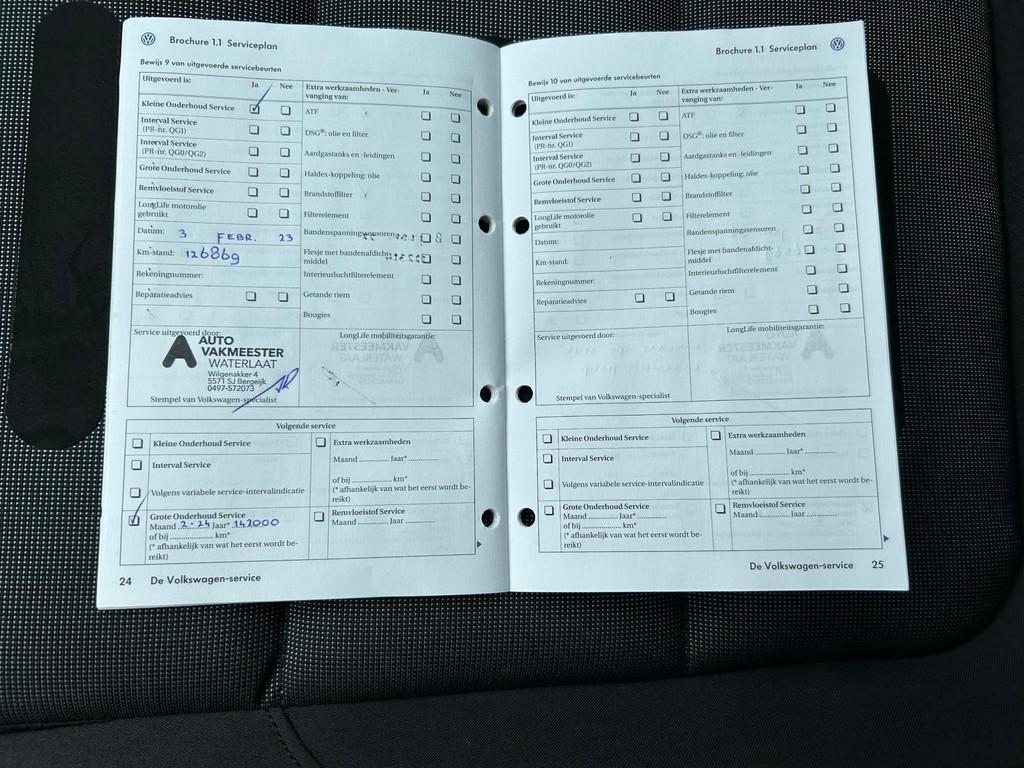 Brochure 1.1 Serviceplan
Bewijs 9 van uitgevoerde servicebeurten
Uitgevoerd is: Ja Nee
Kleine Onderhoud Service
Interval Service
(PR-nr. QG1)
Interval Service
(PR-nr. QG0/QG2)
Grote Onderhoud Service
Remvloeistof Service
LongLife motorolie
gebruikt
Datum: 3 FEBR. 23
Km-stand: 126869
Rekeningnummer:
Reparatieadvies
Extra werkzaamheden - Ver-
vanging van: Ja Nee
ATF
DSG®: olie en filter
Aardgastanks en -leidingen
Haldex-koppeling: olie
Brandstoffilter
Filterelement
Bandenspanningssensoren
Flesje met bandenafdicht-
middel
Interieurluchtfilterelement
Getande riem
Bougies
Service uitgevoerd door:
AUTO
VAKMEESTER
WATERLAAT
Wilgenakker 4
5571 SJ Bergeijk
0497-572073
Stempel van Volkswagen-specialist
LongLife mobiliteitsgarantie:
Volgende service
Kleine Onderhoud Service
Interval Service
Volgens variabele service-intervalindicatie
Grote Onderhoud Service
Maand 2-24 Jaar* 142000
of bij .................... km*
(* afhankelijk van wat het eerst wordt be-
reikt)
Extra werkzaamheden
Maand ............ Jaar* ............
of bij .................... km*
(* afhankelijk van wat het eerst wordt be-
reikt)
Remvloeistof Service
Maand ............ Jaar ............
24 De Volkswagen-service
Brochure 1.1 Serviceplan
Bewijs 10 van uitgevoerde servicebeurten
Uitgevoerd is: Ja Nee
Kleine Onderhoud Service
Interval Service
(PR-nr. QG1)
Interval Service
(PR-nr. QG0/QG2)
Grote Onderhoud Service
Remvloeistof Service
LongLife motorolie
gebruikt
Datum:
Km-stand:
Rekeningnummer:
Reparatieadvies
Extra werkzaamheden - Ver-
vanging van: Ja Nee
ATF
DSG®: olie en filter
Aardgastanks en -leidingen
Haldex-koppeling: olie
Brandstoffilter
Filterelement
Bandenspanningssensoren
Flesje met bandenafdicht-
middel
Interieurluchtfilterelement
Getande riem
Bougies
Service uitgevoerd door:
Stempel van Volkswagen-specialist
LongLife mobiliteitsgarantie:
Volgende service
Kleine Onderhoud Service
Interval Service
Volgens variabele service-intervalindicatie
Grote Onderhoud Service
Maand ............ Jaar* ............
of bij .................... km*
(* afhankelijk van wat het eerst wordt be-
reikt)
Extra werkzaamheden
Maand ............ Jaar* ............
of bij .................... km*
(* afhankelijk van wat het eerst wordt be-
reikt)
Remvloeistof Service
Maand ............ Jaar ............
De Volkswagen-service 25